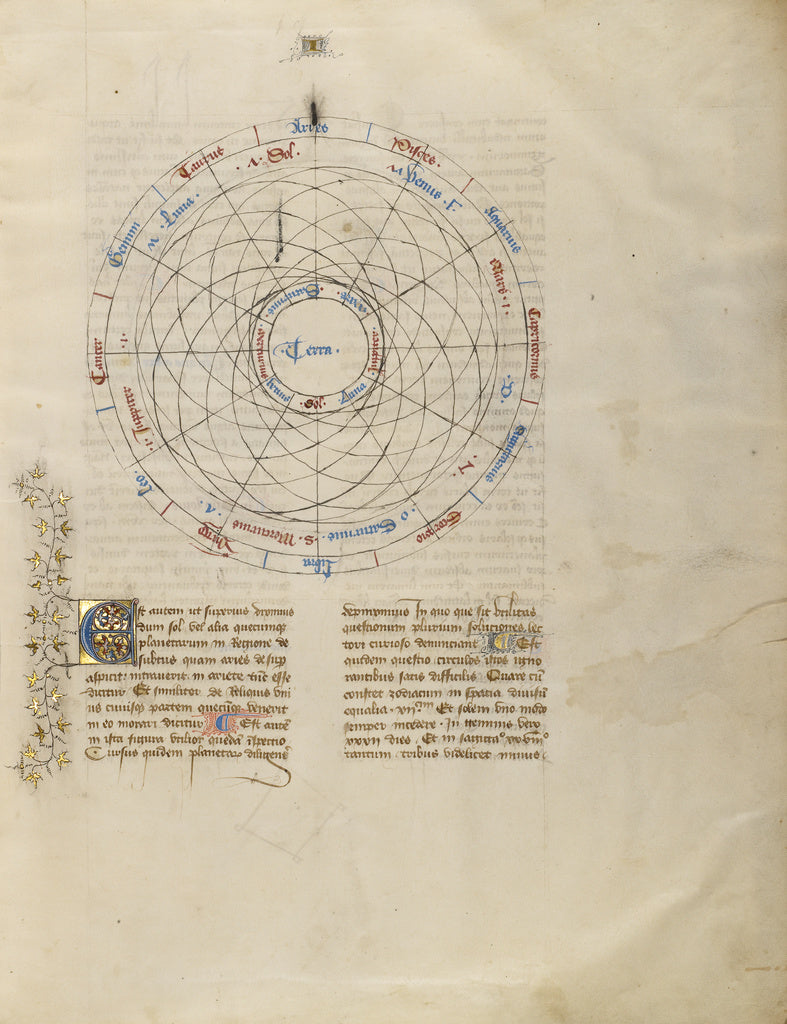 Aries
Pisces.
Aquarius
Capricornus
Sagittarius
Scorpio
Libra
Virgo
Leo
Cancer
Gemini
Taurus
Sol.
Venus. F.
Mars. i.
D.
L.
o Saturnus
S. Mercurius
A.
Jupiter
i.
Luna.
Saturnus
Luna
Sol.
Venus
mercurius
Terra.
Est autem ut superius diximus
dum sol vel alia quecumque
planetarum in Regione de
subtus quam aries desup
aspicit intraverit in ariete tunc esse
dicitur Et similiter de Reliquis vni
us cuiusque partem quecumque venerit
in eo morari dicitur Est autem
in ista figura vtilior quedam inspectio
Cursus quidem planetarum diligens
depromimus In quo que sit vtilitas
questionum plurium soluciones lec
tori curioso denunciant Est
quidem questio circulos ipsos igno
rantibus satis difficilis Quare cum
constet zodiacum in sparia diuisum
equalia xii Et solem vno modo
semper incedere In terminis vero
xxxii dies Et in sanita xxviii
tantum tribus videlicet minus